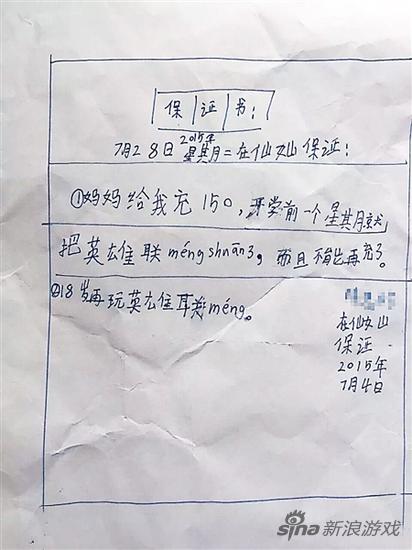 保证书:
2015年
7月28日星期二在仙女山保证:
①妈妈给我充150,开学前一个星期就
把英雄联méng shuān3,而且不能再充了。
②18岁再玩英雄联méng。
在仙女山
保证
2015年
7月4日
sina新浪游戏